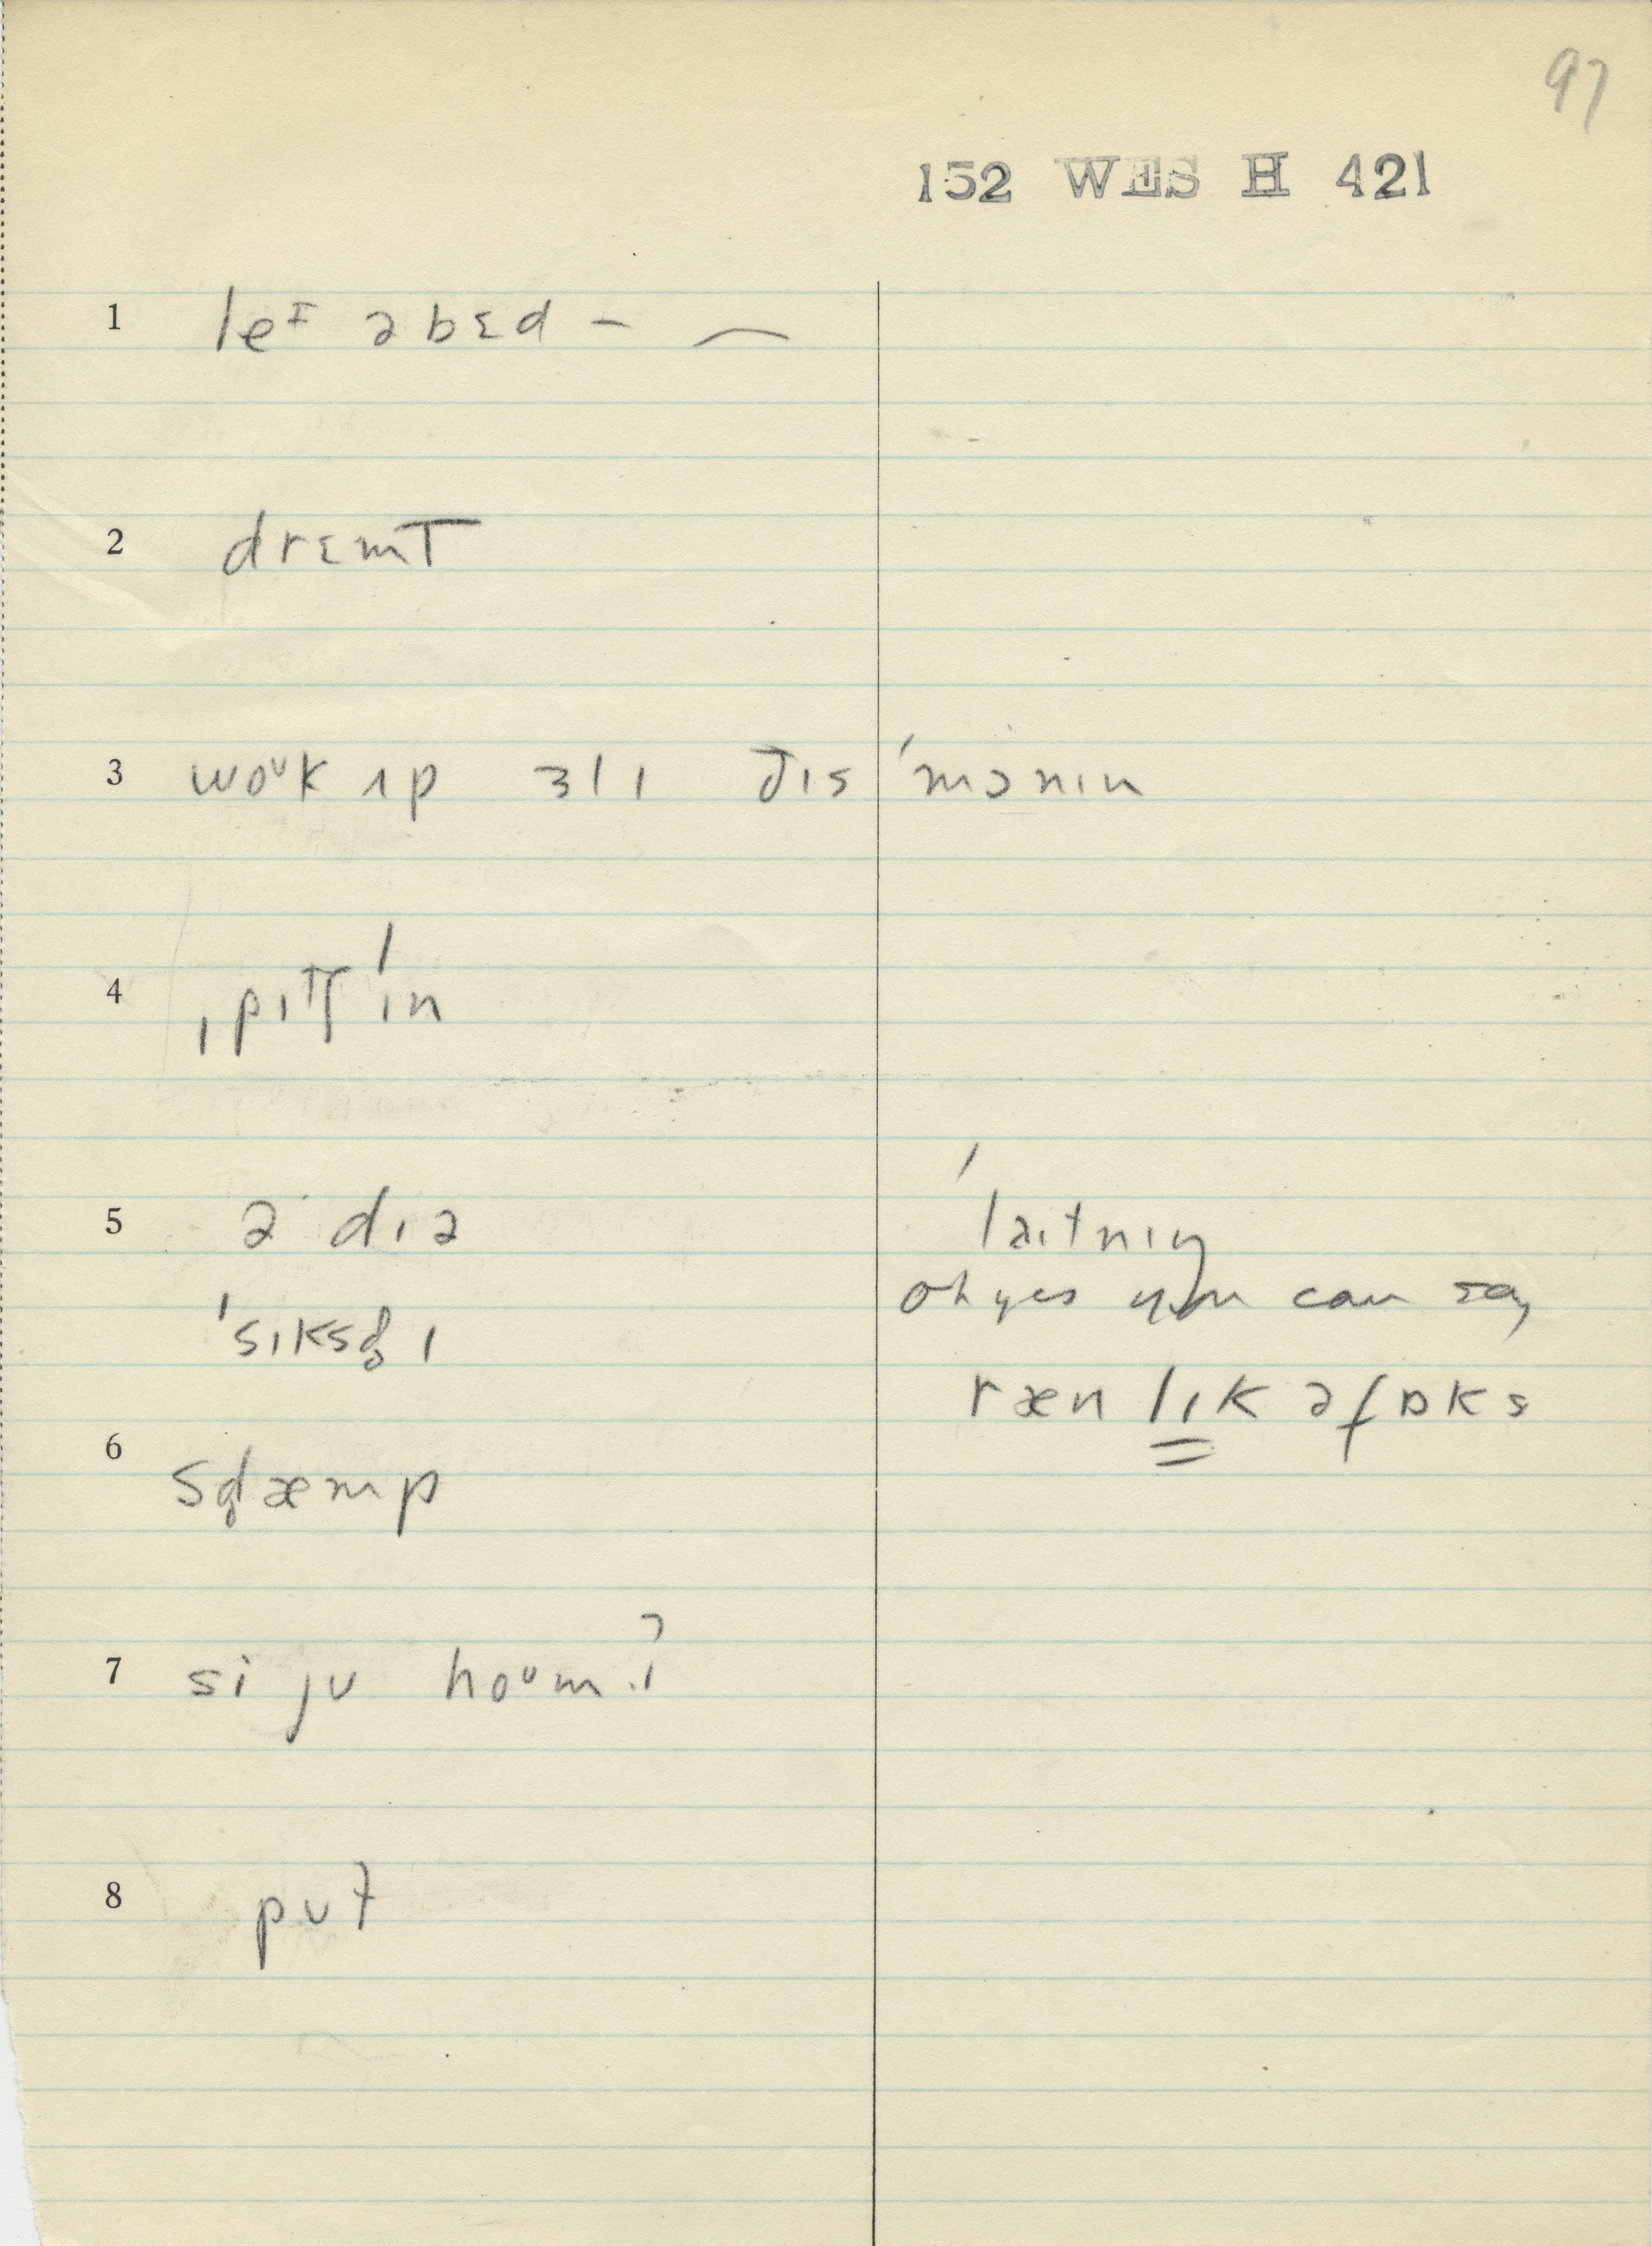 97
152 WES H 421
1 leɪ əbɛd – ⁀
2 drɛmt
3 woᴜk ʌp ɜlɪ ðɪs ˈmɔnɪn
4 ˌpɪtʃ ˈɪn
5 ə dɪə
ˈlaɪtnɪŋ
oh yes you can say
ræn lɪk ə fɒks
6
7 si jʊ hoᴜm ?
8 pʊt